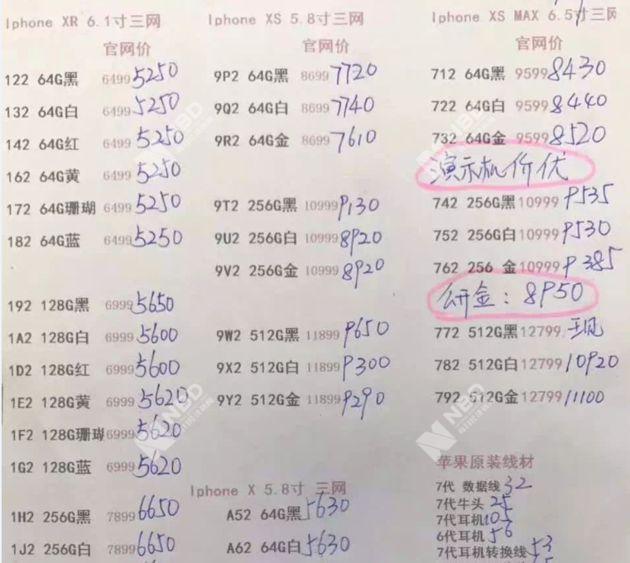 Iphone XR 6.1寸三网
官网价
122 64G黑 6499 5250
132 64G白 6499 5250
142 64G红 6499 5250
162 64G黄 6499 5250
172 64G珊瑚 6499 5250
182 64G蓝 6499 5250
192 128G黑 6999 5650
1A2 128G白 6999 5600
1D2 128G红 6999 5600
1E2 128G黄 6999 5620
1F2 128G珊瑚 6999 5620
1G2 128G蓝 6999 5620
1H2 256G黑 7899 6650
1J2 256G白 7899 6650
Iphone XS 5.8寸三网
官网价
9P2 64G黑 8699 7720
9Q2 64G白 8699 7740
9R2 64G金 8699 7610
9T2 256G黑 10999 9130
9U2 256G白 10999 8920
9V2 256G金 10999 8920
9W2 512G黑 11899 9650
9X2 512G白 11899 9300
9Y2 512G金 11899 9290
Iphone X 5.8寸 三网
A52 64G黑 5630
A62 64G白 5630
Iphone XS MAX 6.5寸三网
官网价
712 64G黑 9599 8430
722 64G白 9599 8440
732 64G金 9599 8520
演示机价优
742 256G黑 10999 9535
752 256G白 10999 9530
762 256 金 10999 9385
金: 8950
772 512G黑 12799
782 512G白 12799 10920
792 512G金 12799 11100
苹果原装线材
7代 数据线 32
7代牛头 25
7代耳机 107
6代耳机 56
7代耳机转换线 53
NBD